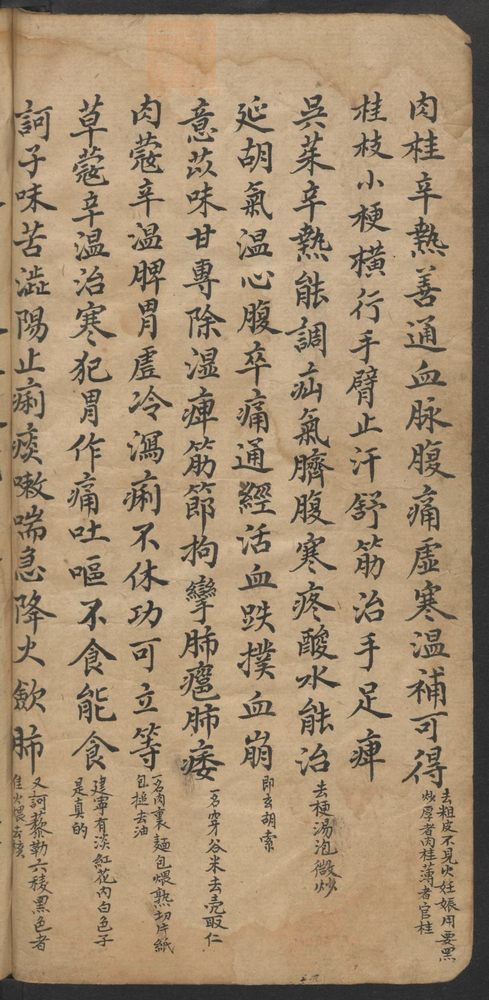 肉桂辛熱善通血脉腹痛虛寒温補可得
去粗皮不見火妊娠用要黑
炒厚者肉桂薄者官桂
桂枝小梗橫行手臂止汗舒筋治手足痺
吳茱辛熱能調疝氣臍腹寒疼酸水能治
去梗湯泡微炒
延胡氣温心腹卒痛通經活血跌撲血崩
即玄胡索
意苡味甘專除湿痺筋節拘攣肺癰肺痿
一名穿谷米去壳取仁
肉蔻辛温脾胃虛冷瀉痢不休功可立等
一名肉裏麵包煨熟切片紙
包搥去油
草蔻辛温治寒犯胃作痛吐嘔不食能食
建寧有淡紅花內白色子
是真的
訶子味苦澁腸止痢痰嗽喘急降火歛肺
又訶藜勒六稜黑色者
佳火煨去核